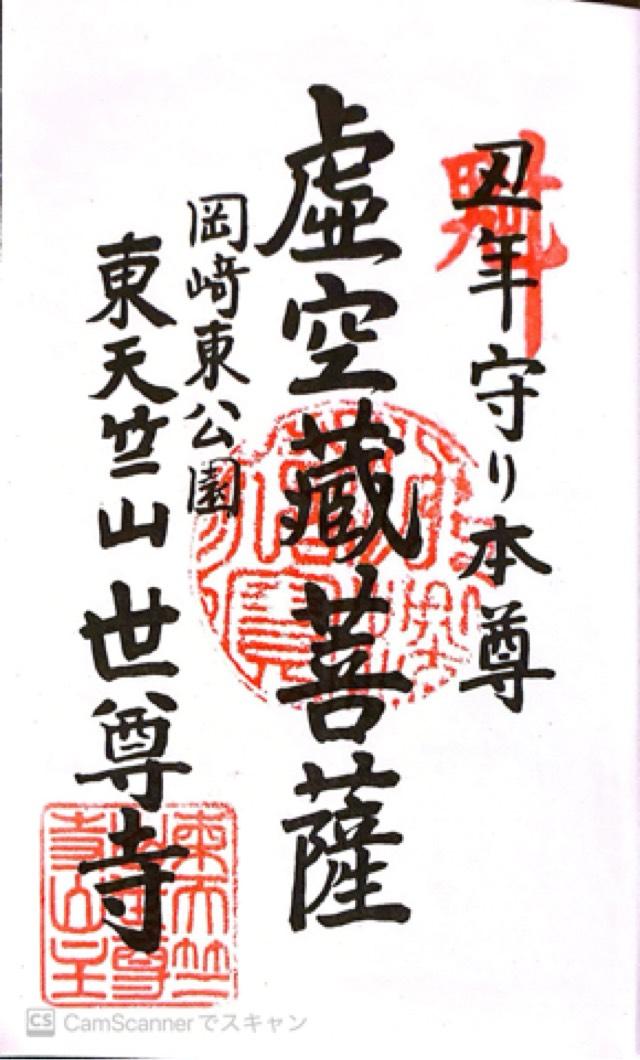 丑年守り本尊
虚空蔵菩薩
岡崎東公園
東天竺山世尊寺
CS CamScannerでスキャン